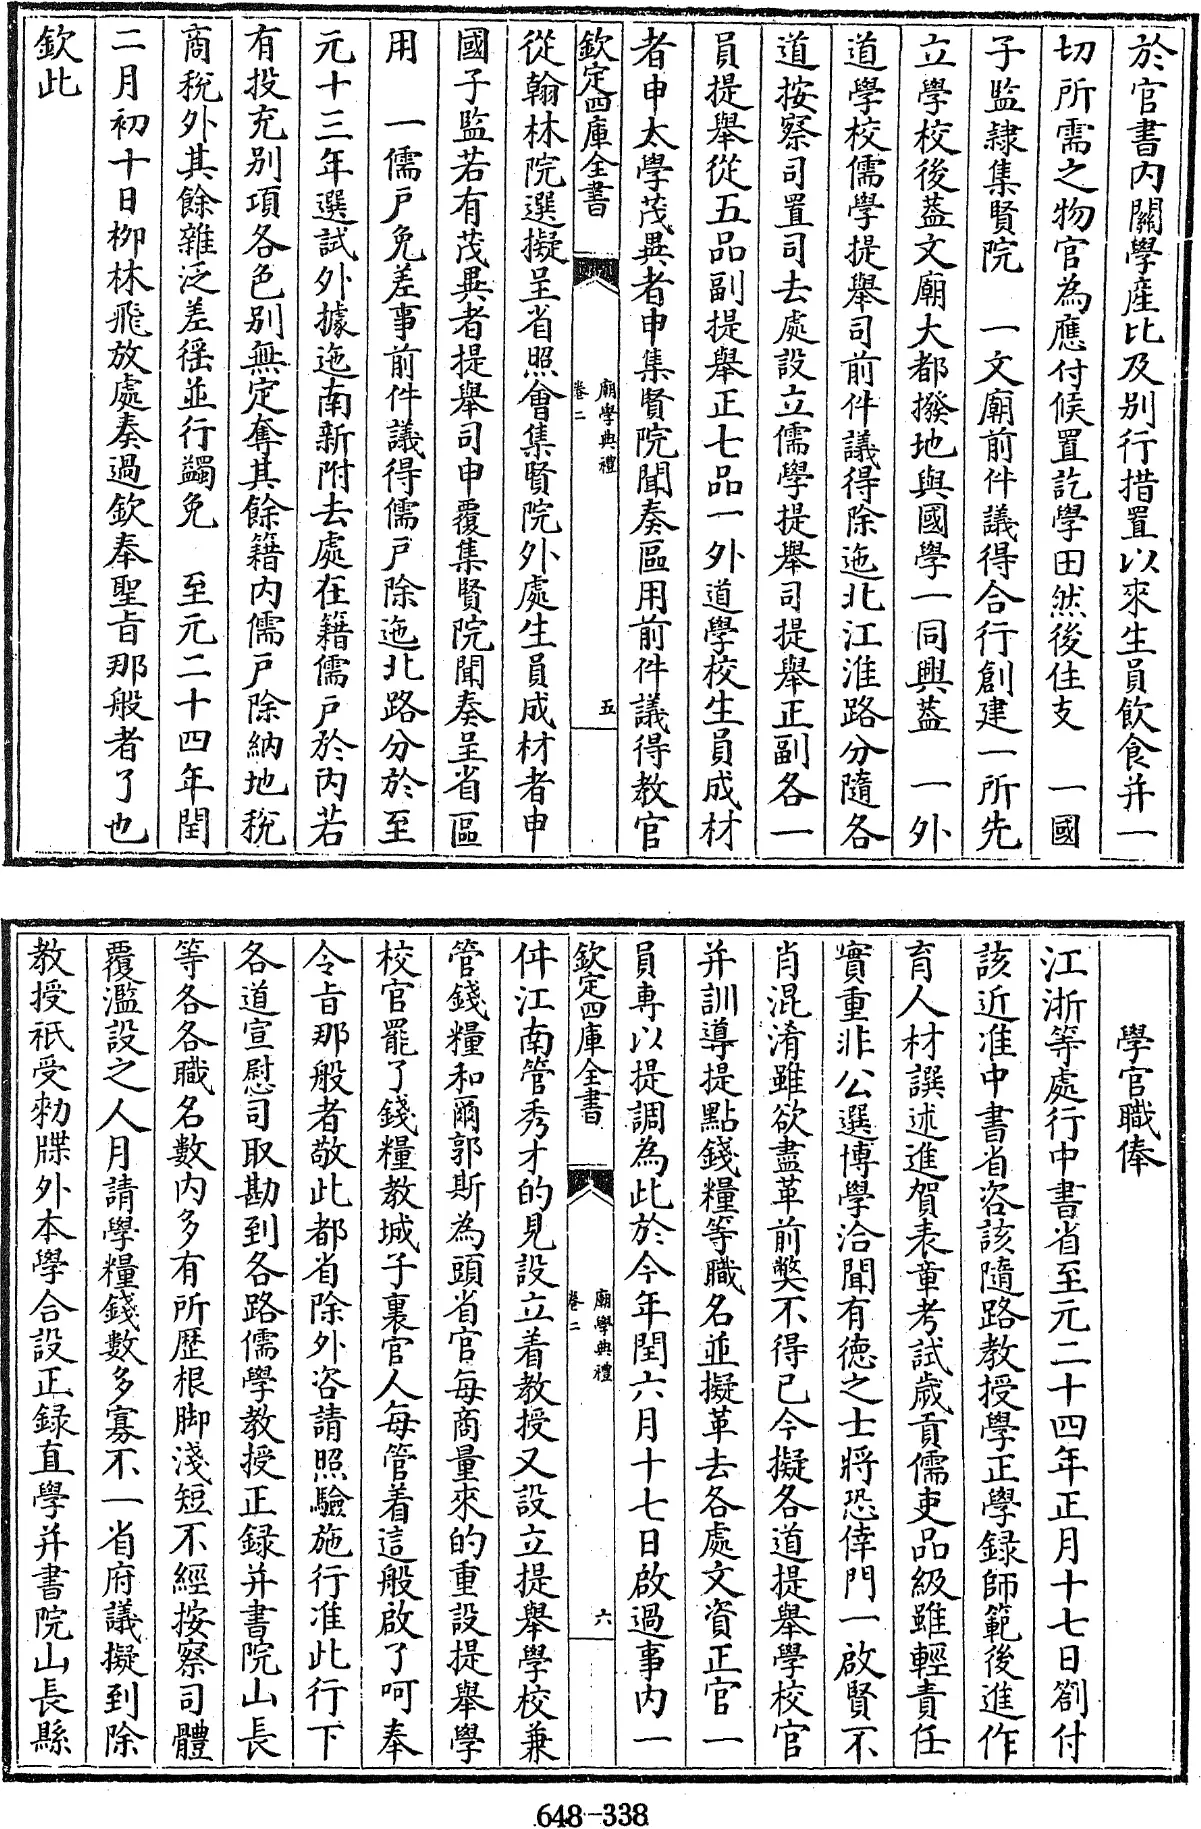 於官書内關學産比及别行措置以來生員飲食并一
切所需之物官為應付候置訖學田然後住支　一國
子監隷集賢院　一文廟前件議得合行創建一所先
立學校後葢文廟大都撥地與國學一同興葢　一外
道學校儒學提舉司前件議得除迤北江淮路分隨各
道按察司置司去處設立儒學提舉司提舉正副各一
員提舉從五品副提舉正七品一外道學校生員成材
者申太學茂異者申集賢院聞奏區用前件議得教官
欽定四庫全書
廟學典禮
卷二
五
從翰林院選擬呈省照會集賢院外處生員成材者申
國子監若有茂異者提舉司申覆集賢院聞奏呈省區
用　一儒戸免差事前件議得儒戸除迤北路分於至
元十三年選試外據迤南新附去處在籍儒戸於内若
有投充别項各色别無定奪其餘籍内儒戸除納地稅
商稅外其餘雜泛差徭並行蠲免　至元二十四年閏
二月初十日栁林飛放處奏過欽奉聖旨那般者了也
欽此
學官職俸
江浙等處行中書省至元二十四年正月十七日劄付
該近准中書省咨該隨路教授學正學録師範後進作
育人材譔述進賀表章考試歲貢儒吏品級雖輕責任
實重非公選博學洽聞有德之士將恐倖門一啟賢不
肖混淆雖欲盡革前弊不得已今擬各道提舉學校官
并訓導提點錢糧等職名並擬革去各處文資正官一
員専以提調為此於今年閏六月十七日啟過事内一
欽定四庫全書
廟學典禮
卷二
六
件江南管秀才的見設立着教授又設立提舉學校兼
管錢糧和爾郭斯為頭省官每商量來的重設提舉學
校官罷了錢糧教城子裏官人每管着這般啟了呵奉
令旨那般者敬此都省除外咨請照驗施行准此行下
各道宣慰司取勘到各路儒學教授正録并書院山長
等各各職名數内多有所歴根脚淺短不經按察司體
覆濫設之人月請學糧錢數多寡不一省府議擬到除
教授祇受勑牒外本學合設正録直學并書院山長縣
648-338